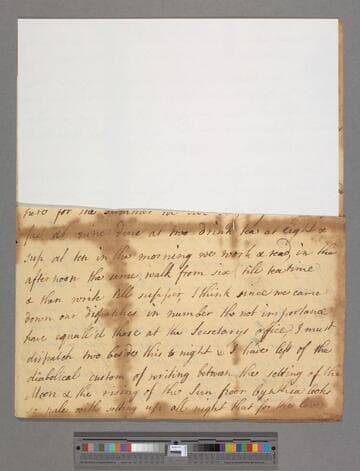 here for the summer we
at nine dine at two drink tea at eight &
sup at ten in the morning we work & read, in the
afternoon the same, walk from six till teatime
& than write till supper I think since we came
down our dispatches in number tho not importance
have equall'd those at the Secretarys office I must
dispatch two besides this to night & I have left of the
diabolical custom of writing between the setting of the
Moon & the rising of the Sun poor Cynthia looks
so pale with sitting up all night that for the